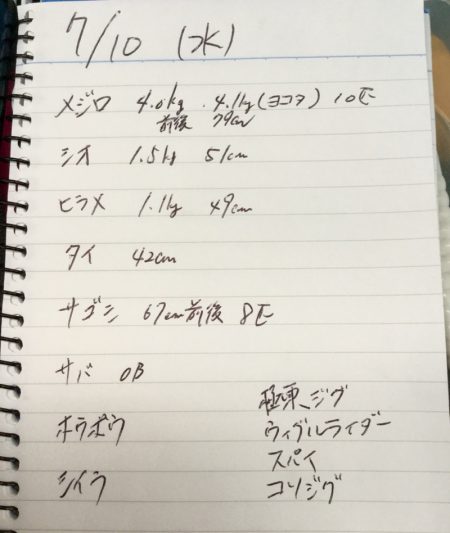 7/10 (水)
メジロ 4.0kg . 4.1kg (ヨコヲ) 10匹
前後 79cm
シオ 1.5kg 51cm
ヒラメ 1.1kg 49cm
タイ 42cm
サゴシ 67cm前後 8匹
サバ OB
極東ジグ
ホウボウ ウィグルライダー
スパイ
シイラ コソジグ